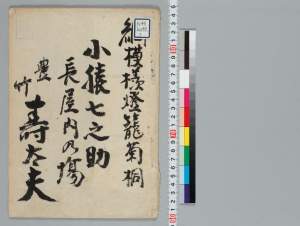 網模様燈籠菊桐
小猿七之助
長屋内の場
豊竹
寿太夫